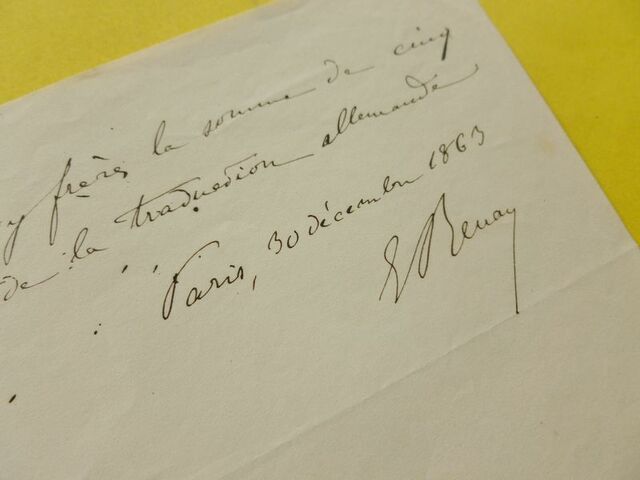 y frères la somme de cinq
de la traduction allemande
Paris, 30 décembre 1863
E Renan